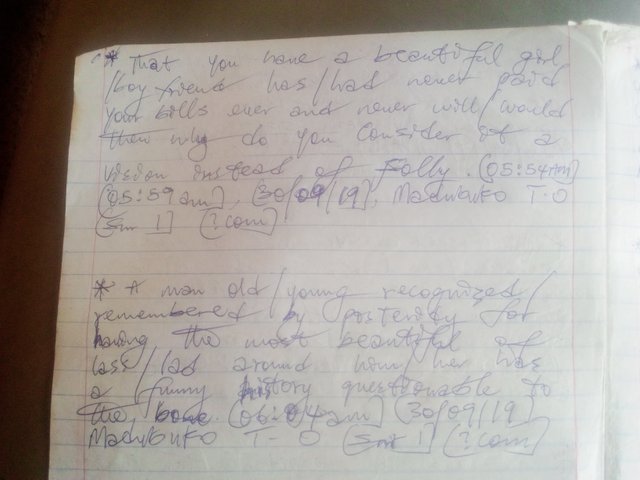 * That you have a beautiful girl
/boy friend has/had never paid
your bills ever and never will/would
then why do you consider it a
vision instead of Folly. [05:54am]
[05:59am], [30/09/19], Madubuko T-O
[Snr 1] [?com]
* A man old/young recognized/
remembered by posterity for
having the most beautiful of
lass/lad around him/her has
a funny history questionable to
the bone. [06:04am] [30/09/19]
Madubuko T-O [Snr 1] [?com]